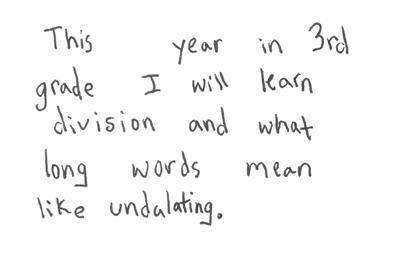 This year in 3rd
grade I will learn
division and what
long words mean
like undulating.